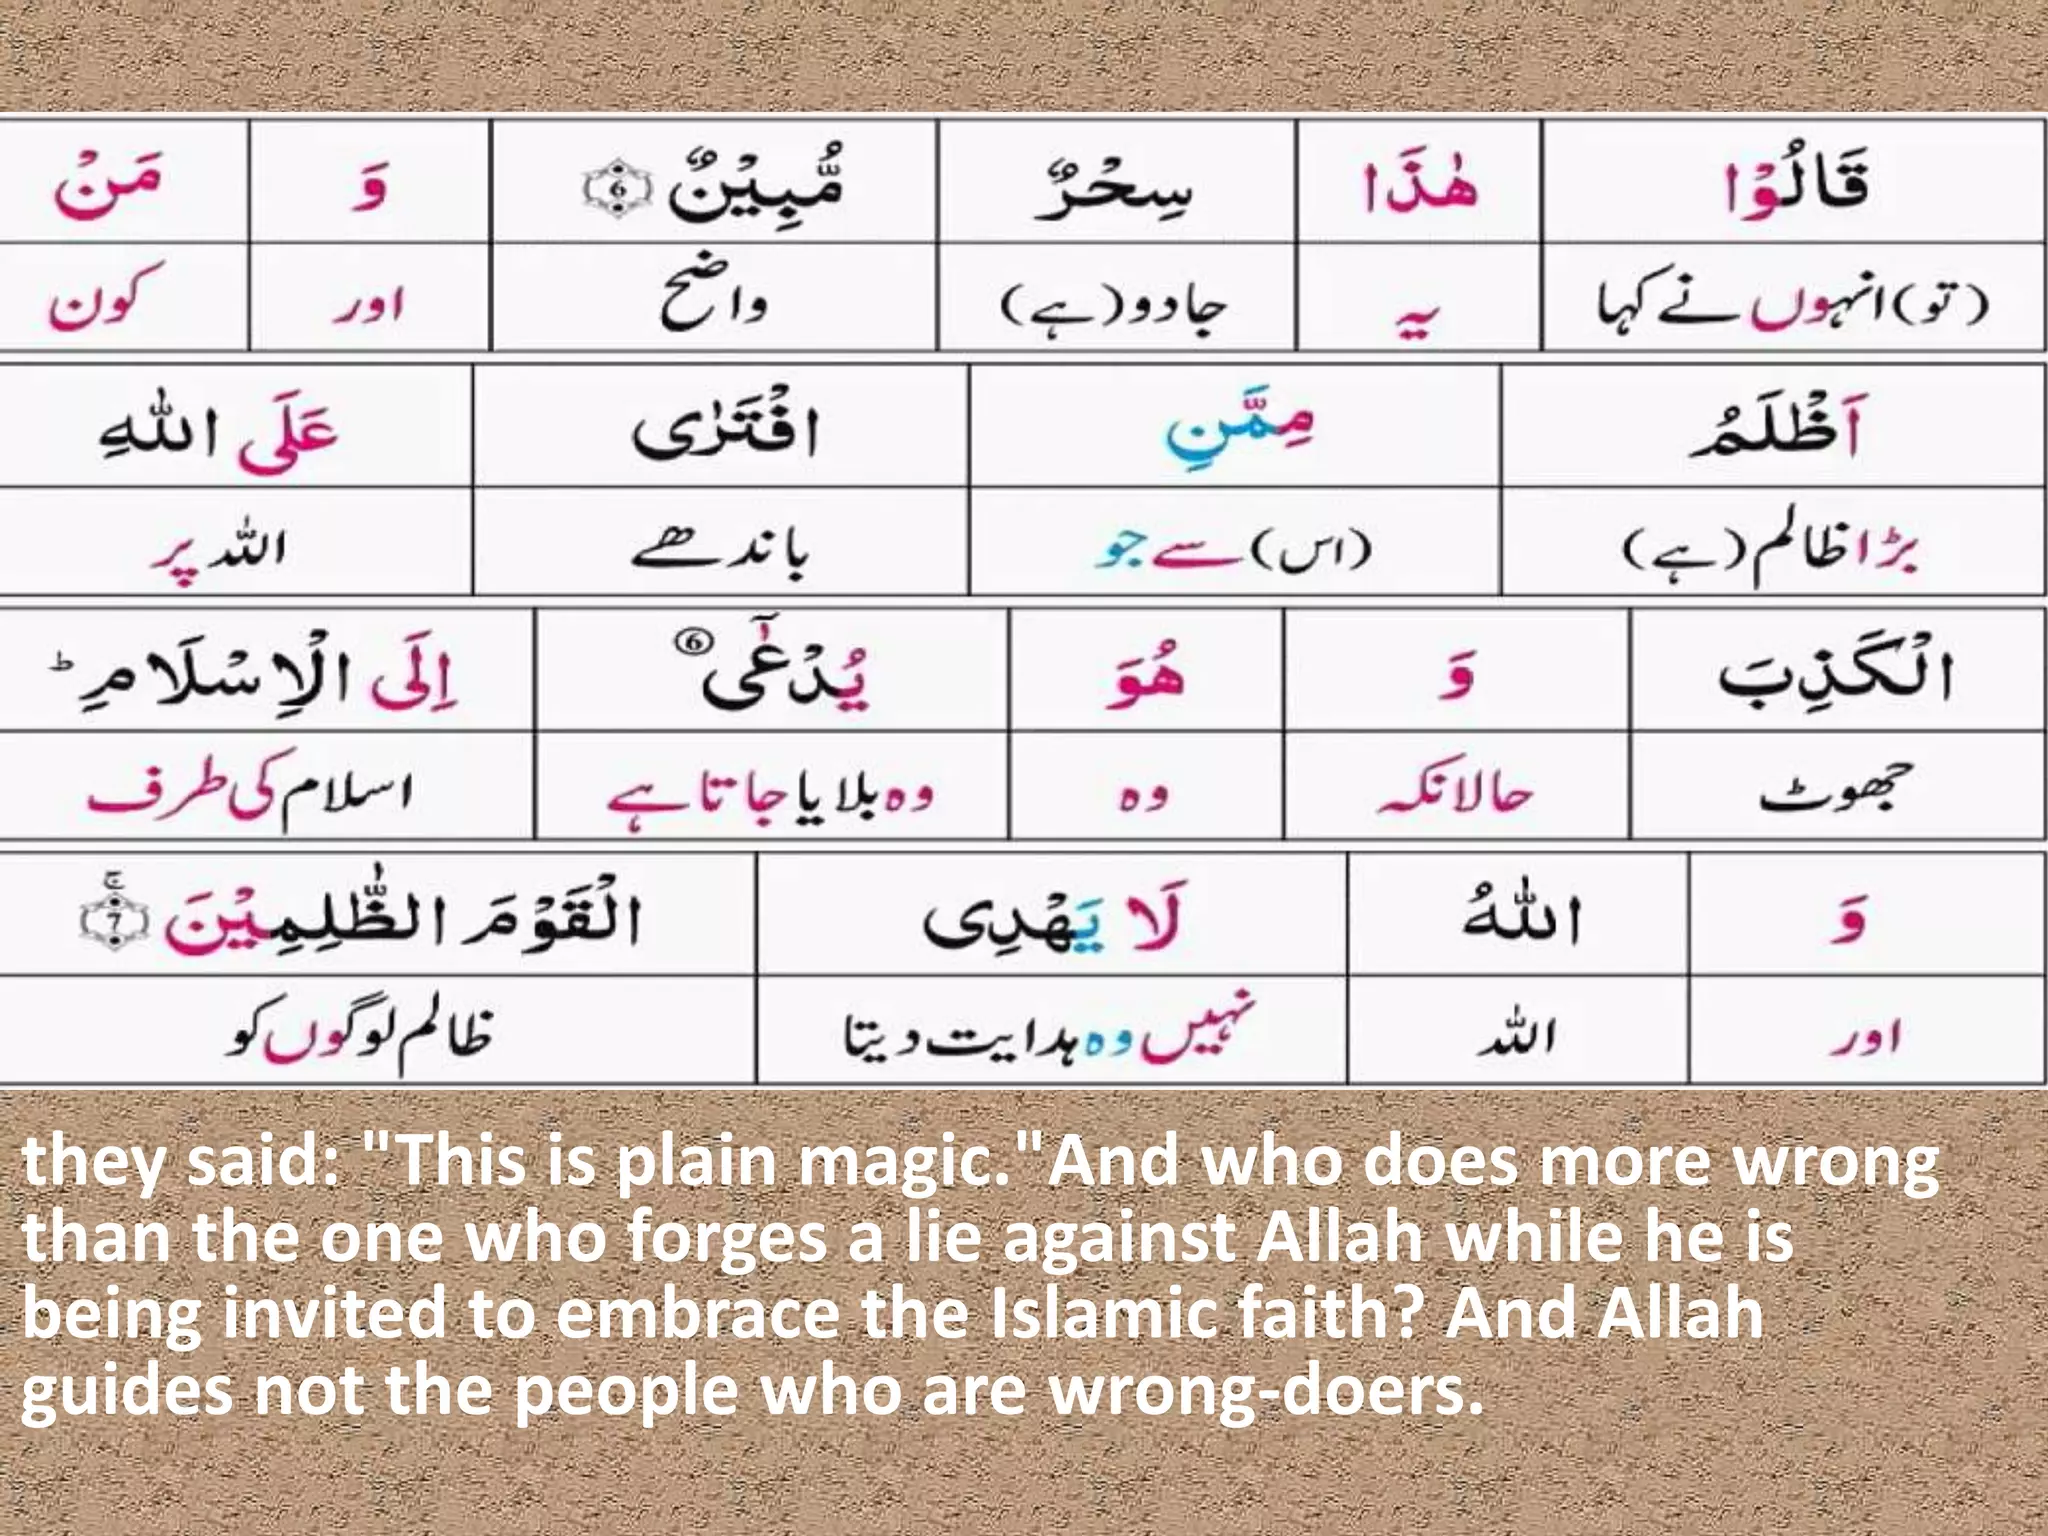 قَالُوْا هٰذَا سِحْرٌ مُّبِيْنٌ ۝6 وَ مَنْ
(تو) انہوں نے کہا یہ جادو (ہے) واضح اور کون
اَظْلَمُ مِمَّنِ افْتَرٰى عَلَى اللّٰهِ
بڑا ظالم (ہے) (اس) سے جو باندھے اللہ پر
الْكَذِبَ وَ هُوَ يُدْعٰٓى ⑥ اِلَى الْاِسْلَامِ ؕ
جھوٹ حالانکہ وہ وہ بلایا جاتا ہے اسلام کی طرف
وَ اللّٰهُ لَا يَهْدِى الْقَوْمَ الظّٰلِمِيْنَ ۝7ۚ
اور اللہ نہیں وہ ہدایت دیتا ظالم لوگوں کو
they said: "This is plain magic."And who does more wrong
than the one who forges a lie against Allah while he is
being invited to embrace the Islamic faith? And Allah
guides not the people who are wrong-doers.